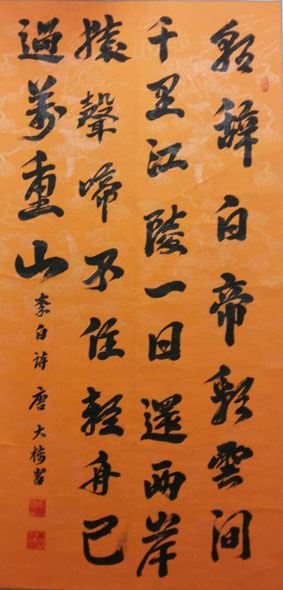 朝辭白帝彩雲間
千里江陵一日還兩岸
猿聲啼不住輕舟已
過萬重山
李白诗 唐大書